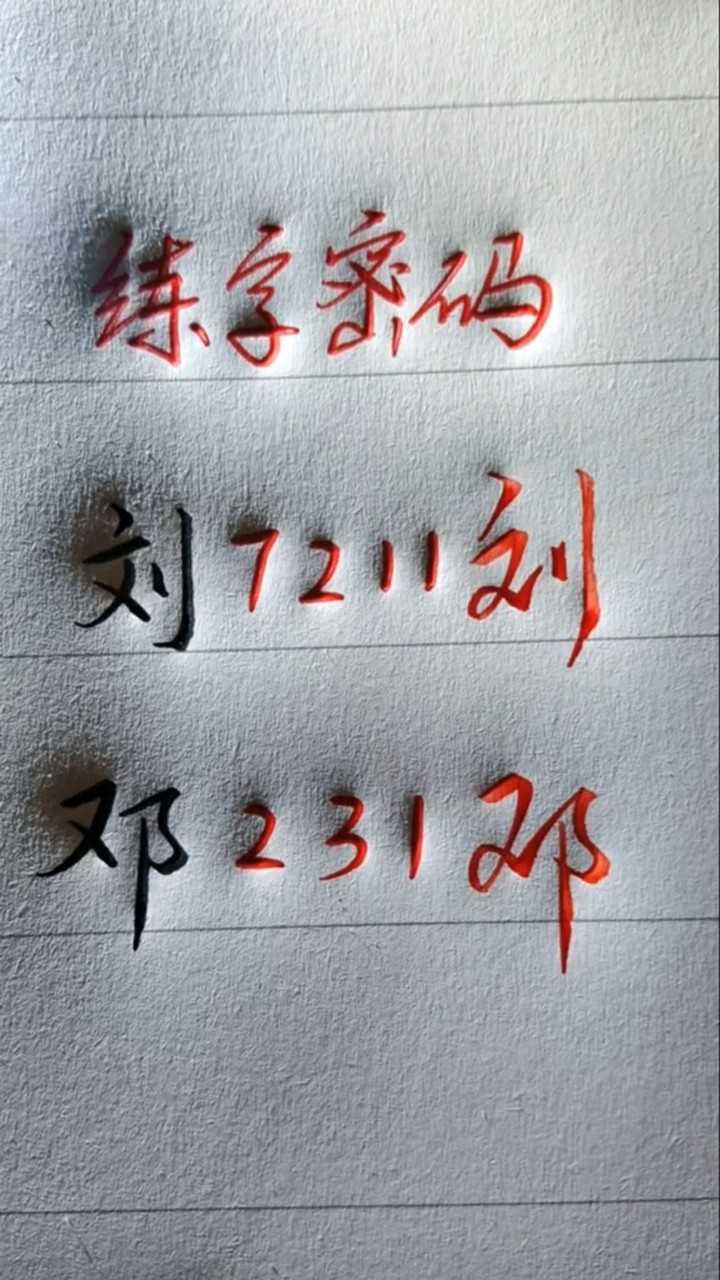 练字密码
刘7211刘
邓231邓